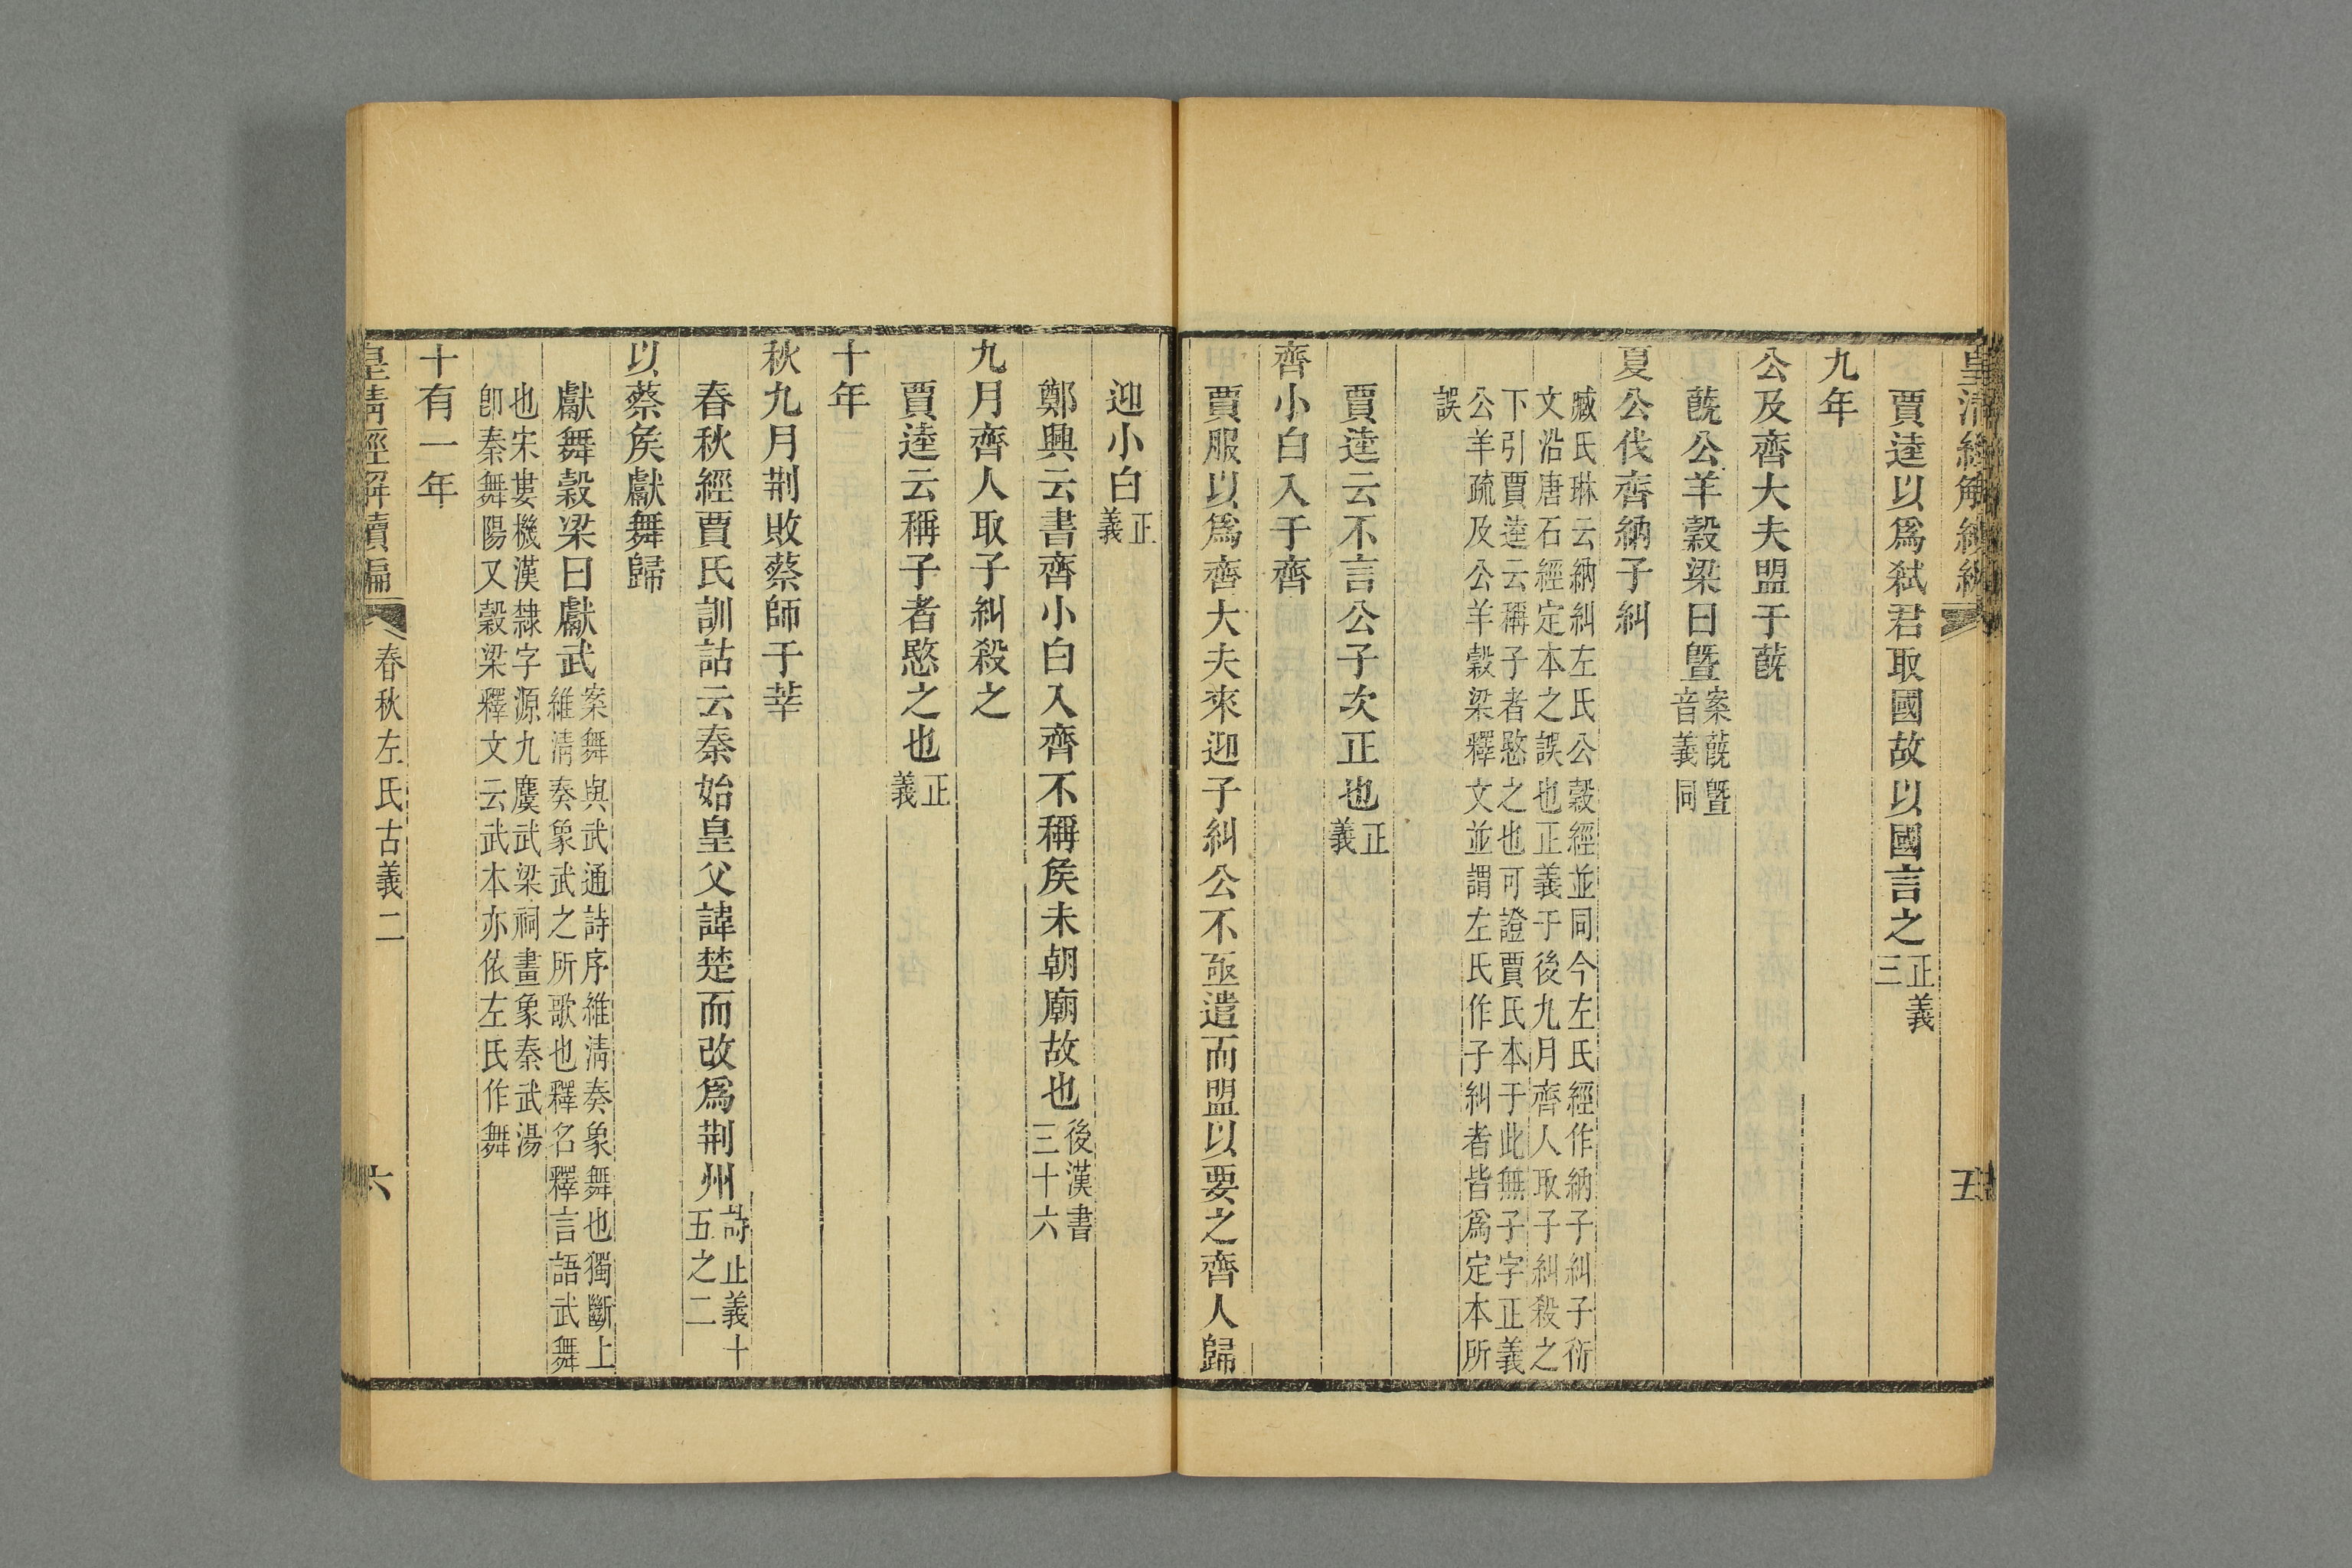 皇清經解續編
五
賈逵以爲弑君取國故以國言之正義
三
九年
公及齊大夫盟于蔇
蔇公羊穀梁曰曁案蔇曁
音義同
夏公伐齊納子糾
臧氏琳云納糾左氏公穀經並同今左氏經作納子糾子衍
文沿唐石經定本之誤也正義于後九月齊人取子糾殺之
下引賈逵云稱子者愍之也可證賈氏本于此無子字正義
公羊疏及公羊穀梁釋文並謂左氏作子糾者皆爲定本所
誤
賈逵云不言公子次正也正
義
齊小白入于齊
賈服以爲齊大夫來迎子糾公不亟遣而盟以要之齊人歸
迎小白正
義
鄭興云書齊小白入齊不稱矦未朝廟故也後漢書
三十六
九月齊人取子糾殺之
賈逵云稱子者愍之也正
義
十年
秋九月荆敗蔡師于莘
春秋經賈氏訓詁云秦始皇父諱楚而改爲荆州詩正義十
五之二
以蔡矦獻舞歸
獻舞穀梁曰獻武案舞與武通詩序維淸奏象舞也獨斷上
維淸奏象武之所歌也釋名釋言語武舞
也宋婁機漢隸字源九麌武梁祠畫象秦武湯
卽秦舞陽又穀梁釋文云武本亦依左氏作舞
十有一年
皇清經解續編
春秋左氏古義二
六